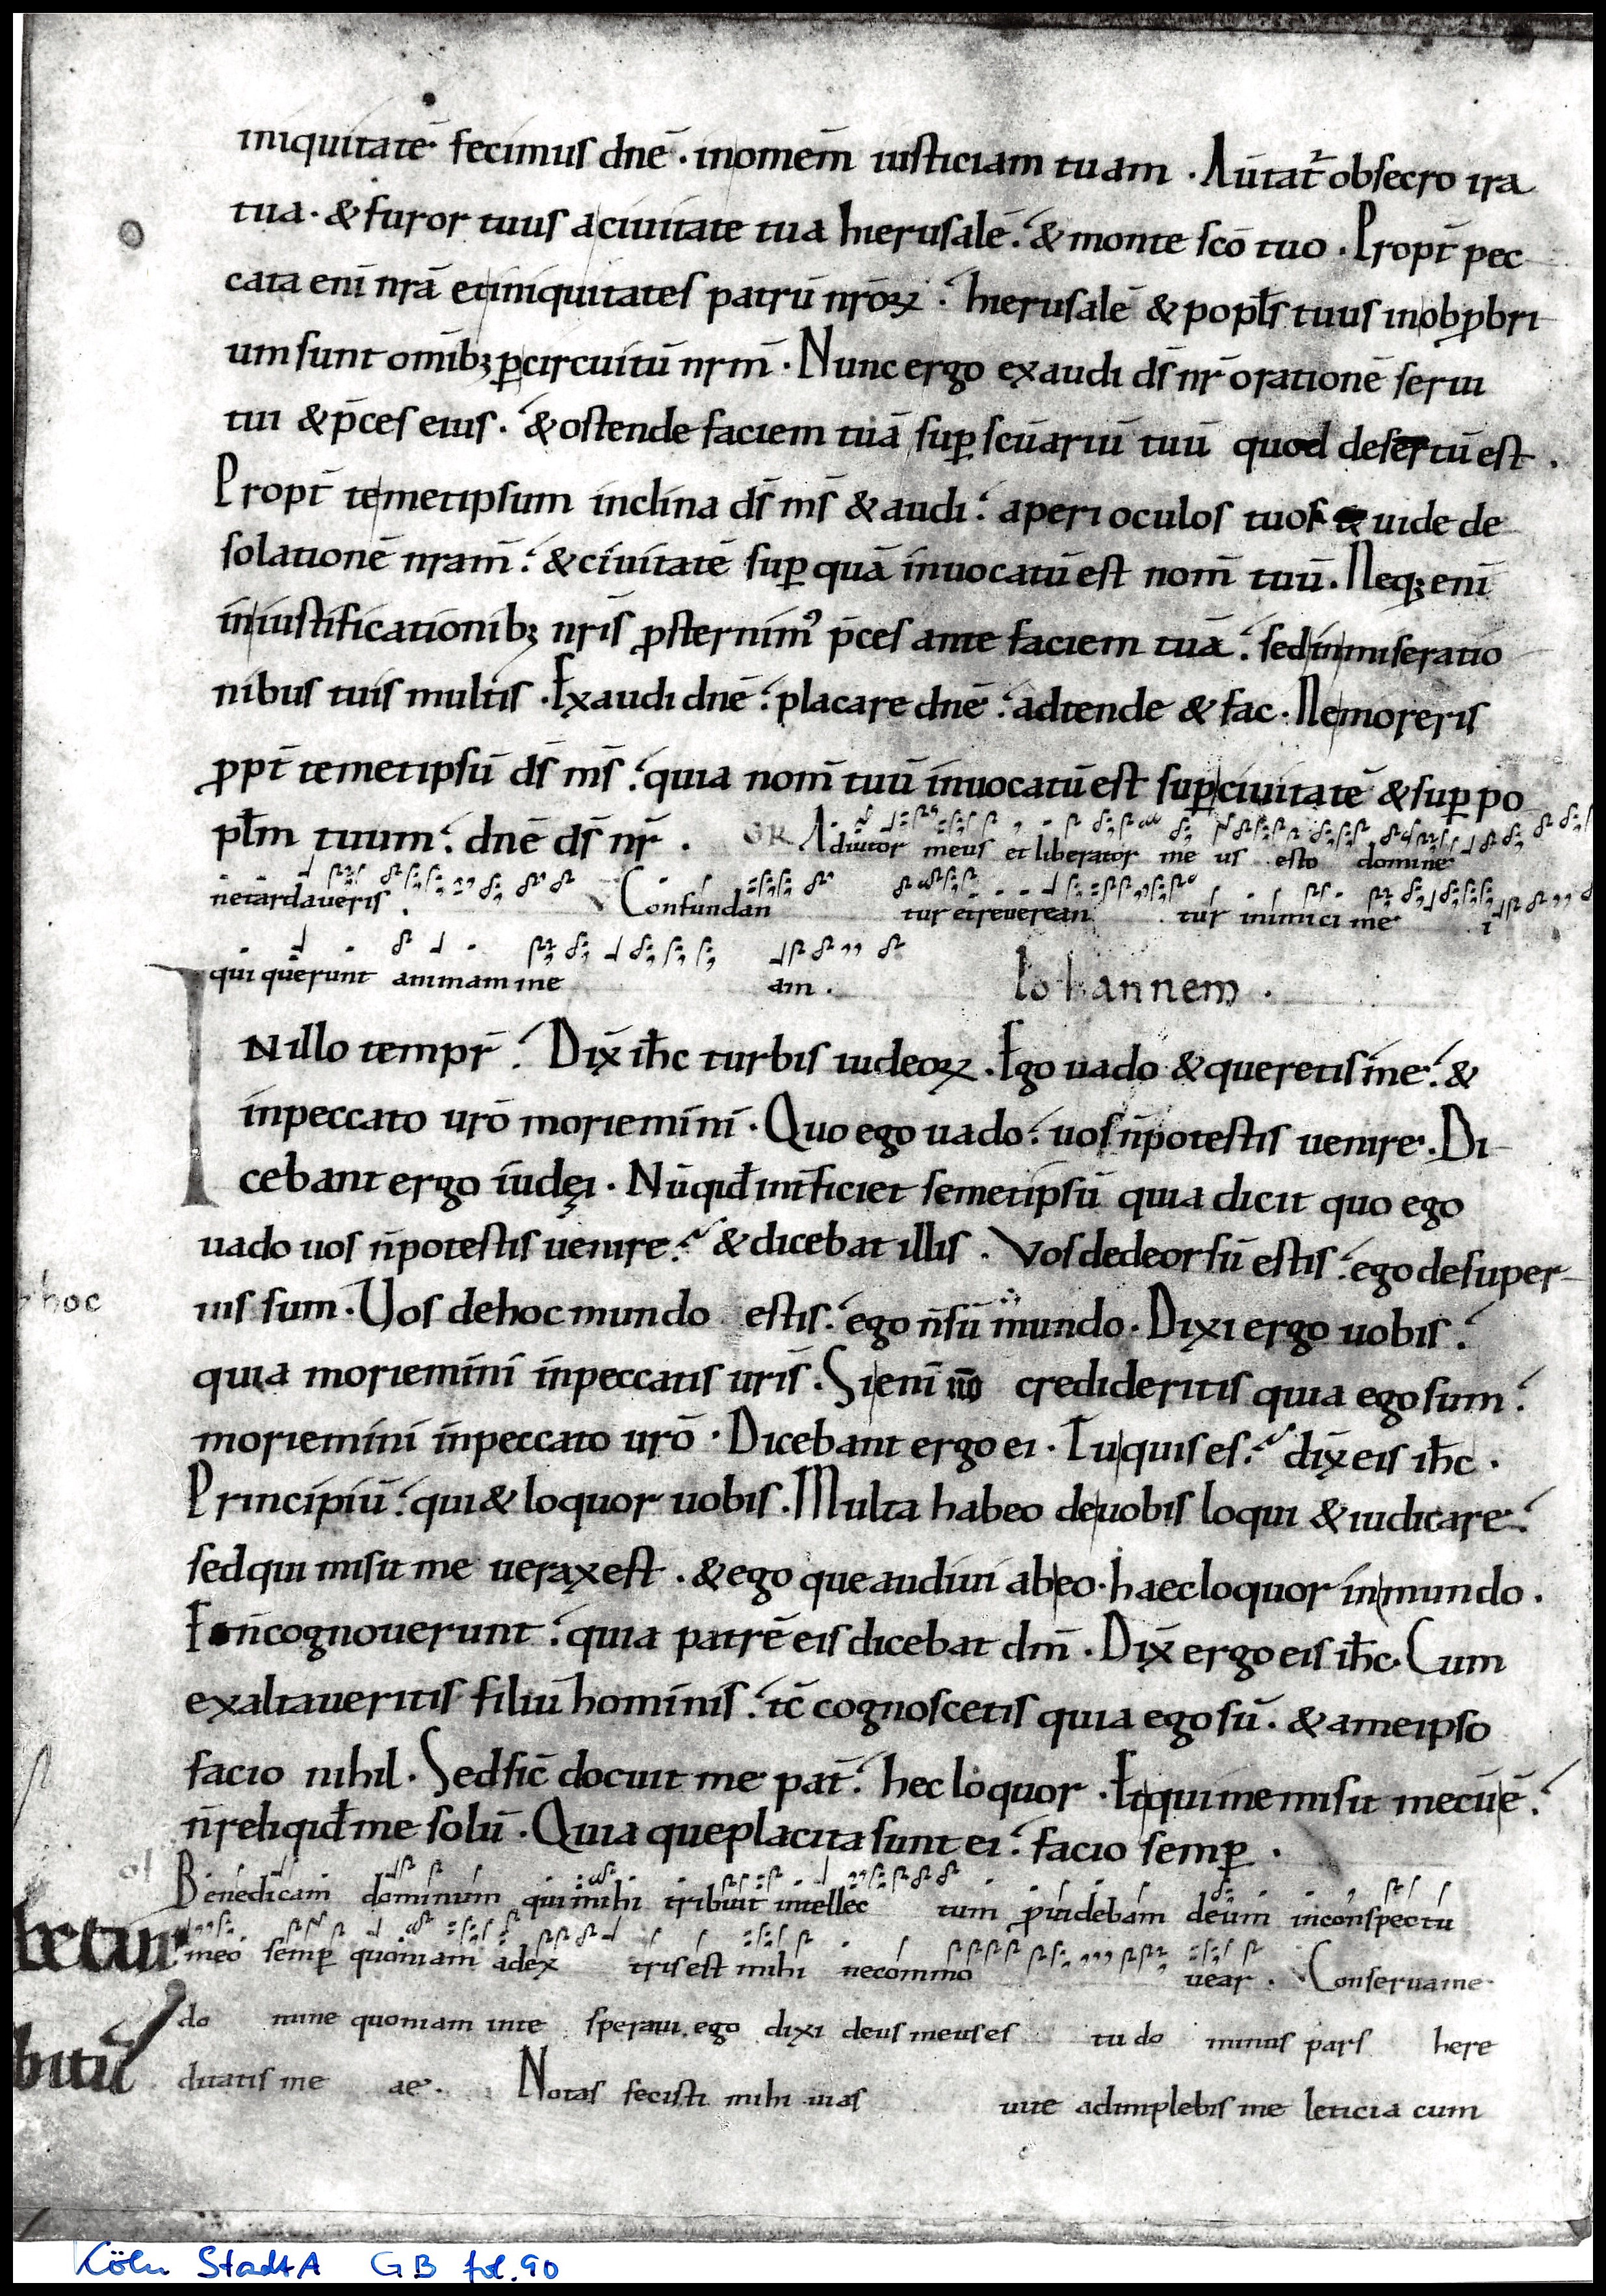 iniquitatē fecimus dnē · inomem̄ iusticiam tuam · Autat̄ obsecro ira
tua · & furor tuus aciuitate tua hierusalē · & monte scō tuo · Propt̄ pec
cata eni nrā etiniquitates patrū nrōꝝ · hierusalē & popl̄s tuus inobꝓbri
um sunt omībꝫ ꝑcircuitū nrm̄ · Nunc ergo exaudi ds̄ nr̄ orationē serui
tui & p̄ces eius · & ostende faciem tuā suꝑ scūariū tuū quod desertū est ·
Propt̄ temetipsum inclina ds̄ ms̄ & audi · aperi oculos tuos & uide de
solationē nram̄ · & ciuitatē suꝑ quā inuocatū est nom̄ tuū · Neqꝫ enī
iniustificationibꝫ nris̄ ꝓsternimꝰ p̄ces ante faciem tuā · sed inmiseratio
nibus tuis multis · Exaudi dnē · placare dnē · adtende & fac · Nemoreris
ꝓpt̄ temetipsū ds̄ ms̄ · quia nom̄ tuū inuocatū est suꝑciuitatē & suꝑ po
pl̄m tuum · dnē ds̄ nr̄ · GR Adiutor meus et liberator me us esto domine
netardaueris · Confundan tur etreuerean tur inimici me i
qui querunt animam me am · Iohannem ·
INillo tempr̄ · Dix̄ ih̄c turbis iudeoꝝ · Ego uado & queretis me · &
inpeccato urō moriemini · Quo ego uado · uos n̄potestis uenire · Di
cebant ergo iudęi · Nūqid̄ int̄ficiet semetipsū quia dicit quo ego
uado uos n̄potestis uenire · & dicebat illis · Vos dedeorsū estis · ego desuper
hoc
nis sum · Uos dehoc mundo estis · ego n̄sū mundo · Dixi ergo uobis ·
quia moriemini inpeccatis uris̄ · Si enī nō credideritis quia ego sum ·
moriemini inpeccato urō · Dicebant ergo ei · Tu quis es · dix̄ eis ih̄c ·
Principiū · qui & loquor uobis · Multa habeo deuobis loqui & iudicare ·
sed qui misit me uerax est · & ego que audiui abeo · haec loquor inmundo ·
Et n̄cognouerunt · quia patrē eis dicebat dm̄ · Dix̄ ergo eis ih̄c · Cum
exaltaueritis filiū hominis · tc̄ cognoscetis quia ego sū · & ameipso
facio nihil · Sed sic̄ docuit me pat̄ · hec loquor · Et qui me misit mecū ē ·
n̄reliqid̄ me solū · Quia que placita sunt ei · facio semꝑ ·
of Benedicam dominum qui mihi tribuit intellec tum ꝓuidebam deum inconspectu
meo semꝑ quoniam adex tris est mihi necommo uear · Conserua me
do mine quoniam inte speraui ego dixi deus meus es tu do minus pars here
ditatis me ae · Notas fecisti mihi uias uite adimplebis me leticia cum
Köln StadtA GB fol. 90